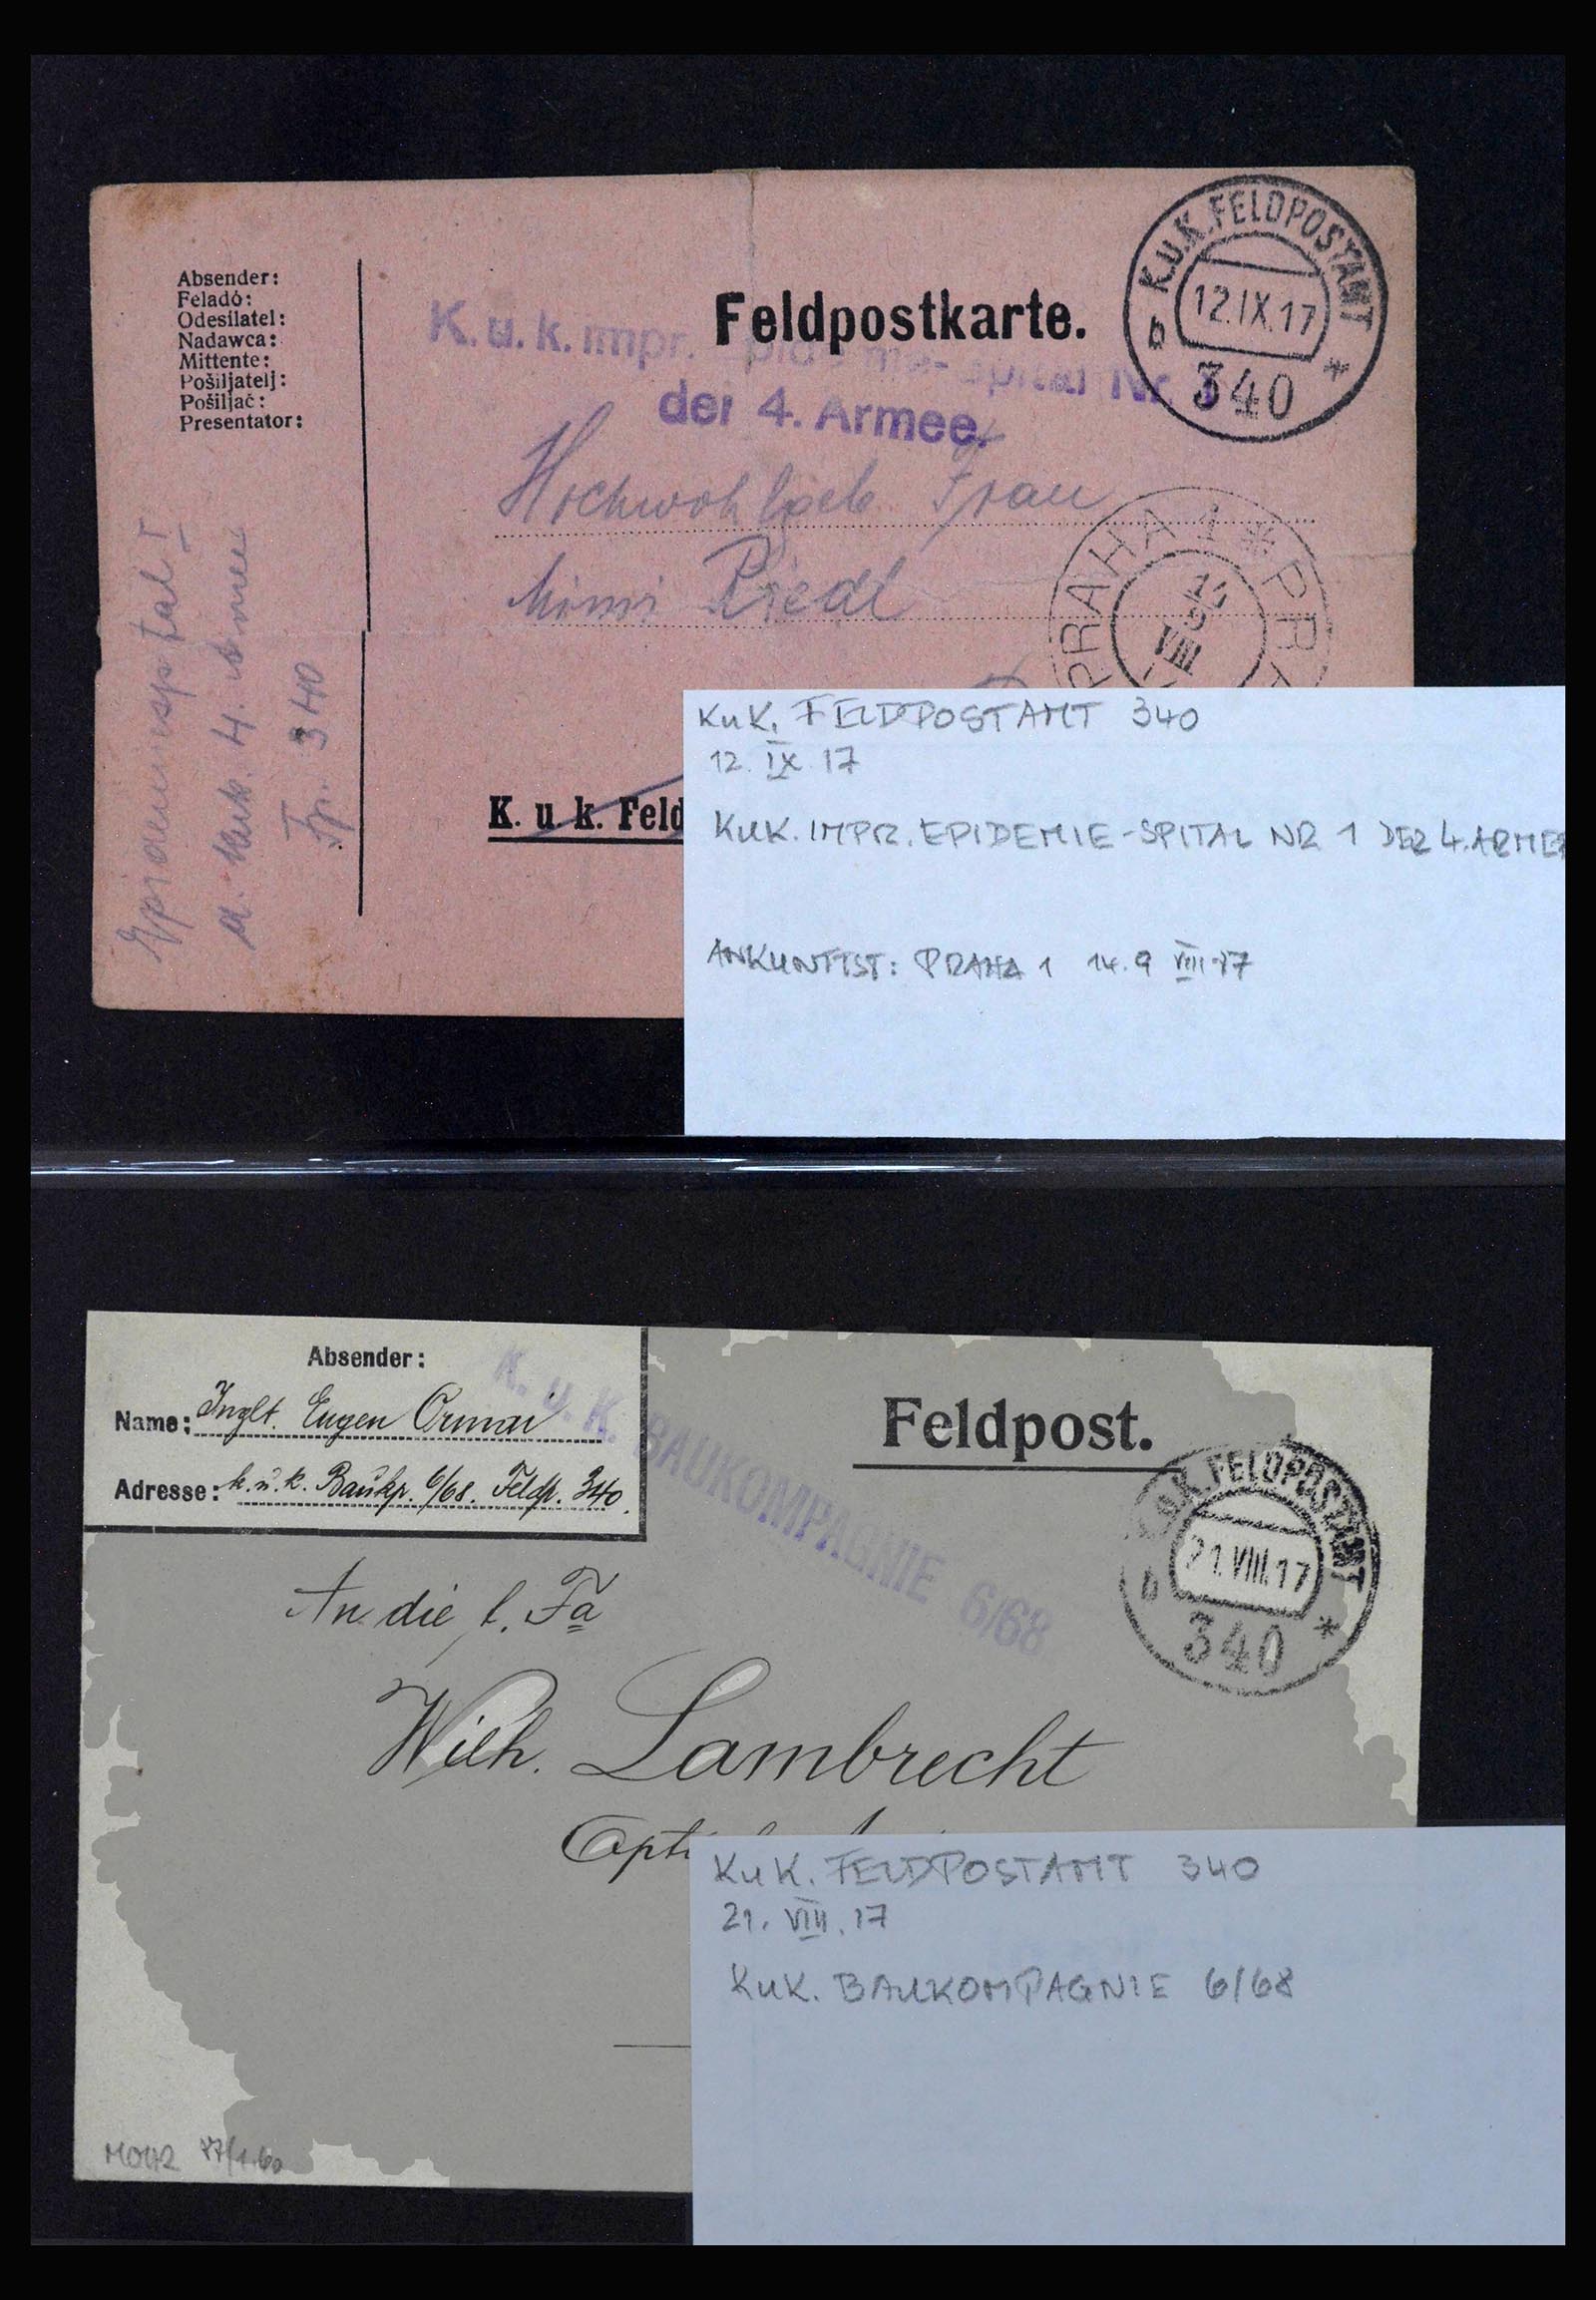 Absender:
Feladó:
Odesilatel:
Nadawca:
Mittente:
Pošiljatelj:
Pošiljač:
Presentator:
Feldpostkarte.
K.u.K. FELDPOSTAMT
12.IX.17
b *
340
K. u. k. impr. Epidemie-Spital Nr. 1
der 4. Armee.
Hochwohlgeb Frau
Mimi Riedl
PRAHA 1 * PR
14
9
VIII
Epidemiespital I
d. kuk. 4. Armee
Fp. 340
K. u. k. Feld
KuK. FELDPOSTAMT 340
12. IX. 17
KUK. IMPR. EPIDEMIE-SPITAL NR 1 DER 4. ARMEE
ANKUNFTST: PRAHA 1 14. 9 VIII 17
Absender:
Name: Eugen
Adresse: k. u. k. Baukp. 6/68. Feldp. 340.
K. u. K. BAUKOMPAGNIE 6/68
Feldpost.
K.u.K. FELDPOSTAMT
21.VIII.17
b *
340
An die l. Fa
Wilh. Lambrecht
Opti
KuK. FELDPOSTAMT 340
21. VIII. 17
KuK. BAUKOMPAGNIE 6/68